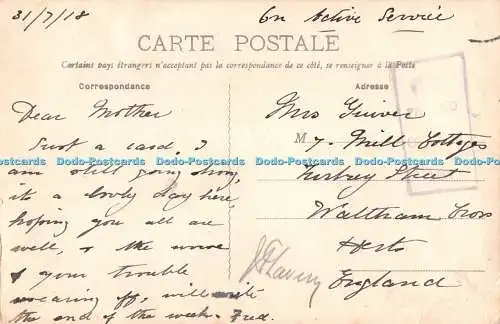 31/7/18
On Active Service
CARTE POSTALE
Certains pays étrangers n'acceptant pas la correspondance de ce côté, se renseigner à la Poste
Correspondance
Adresse
Dear Mother
Just a card. I
am still going strong,
its a lovely day here,
hoping you all are
well, & the
& your trouble
wearing off, will write
the end of the week. Fred.
Mrs Guiver
M
7. Mill Cottages
Street
Waltham Cross
Herts
England
Dodo-Postcards Dodo-Postcards Dodo-Postcards Dodo-Postcards Dodo-Postcards